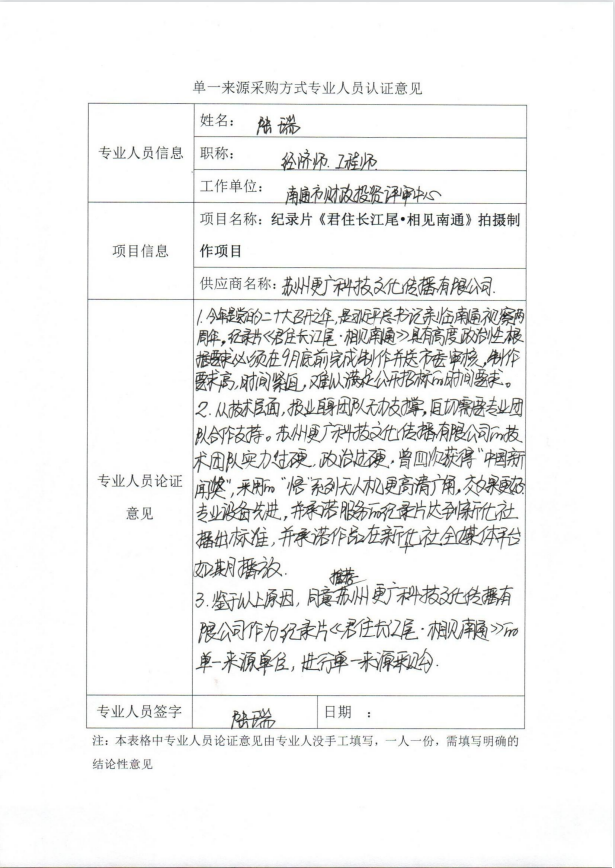 单一来源采购方式专业人员认证意见
专业人员信息
姓名： 陆瑞
职称： 经济师、工程师
工作单位： 南通市财政投资评审中心
项目信息
项目名称：纪录片《君住长江尾•相见南通》拍摄制
作项目
供应商名称：苏州更广科技文化传播有限公司
专业人员论证
意见
1.今年是党的二十大召开之年，是习近平总书记亲临南通视察两
周年，纪录片《君住长江尾·相见南通》具有高度政治性，根
据要求必须在9月底前完成制作并送市委审核，制作
要求高，时间紧迫，难以满足公开招标的时间要求。
2.从技术层面，报业自身团队无力支撑，迫切需要专业团
队合作支持。苏州更广科技文化传播有限公司的技
术团队实力过硬，政治过硬，曾四次获得“中国新
闻奖”，采用的“悟”系列无人机更高清广角，效果更好
专业设备先进，并承诺服务的纪录片达到新华社
播出标准，并承诺作品在新华社全媒体平台
如期播放.
3.鉴于以上原因，同意推荐苏州更广科技文化传播有
限公司作为纪录片《君住长江尾·相见南通》的
单一来源单位，进行单一来源采购.
专业人员签字 陆瑞 日期 ：
注：本表格中专业人员论证意见由专业人没手工填写，一人一份，需填写明确的
结论性意见